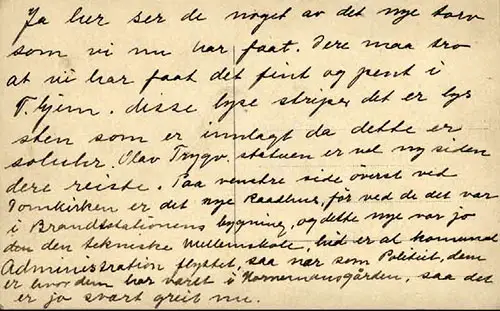 Ja her ser de noget av det nye torv
som vi nu har faat. Dere maa tro
at vi har faat det fint og pent i
T.hjem. disse lyse striper det er lys
sten som er innlagt da dette er
soluhr. Olav Trygv. statuen er vel ny siden
dere reiste. Paa venstre side överst ved
Domkirken er det nye Raadhus, før ved de det var
i Brandstationens bygning, og dette nye var jo
den den tekniske Mellemskole, hid er al komunal
Administration flyttet, saa nær som Politiet, dem
er hvor dem har været i Hornemansgården, saa det
er jo svært greit nu.